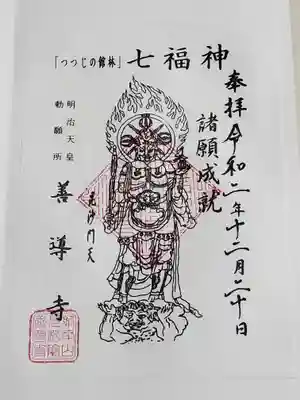 「つつじの館林」七福神
奉拝令和二年十二月二十日
諸願成就
毘沙門天
明治天皇
勅願所
善導寺